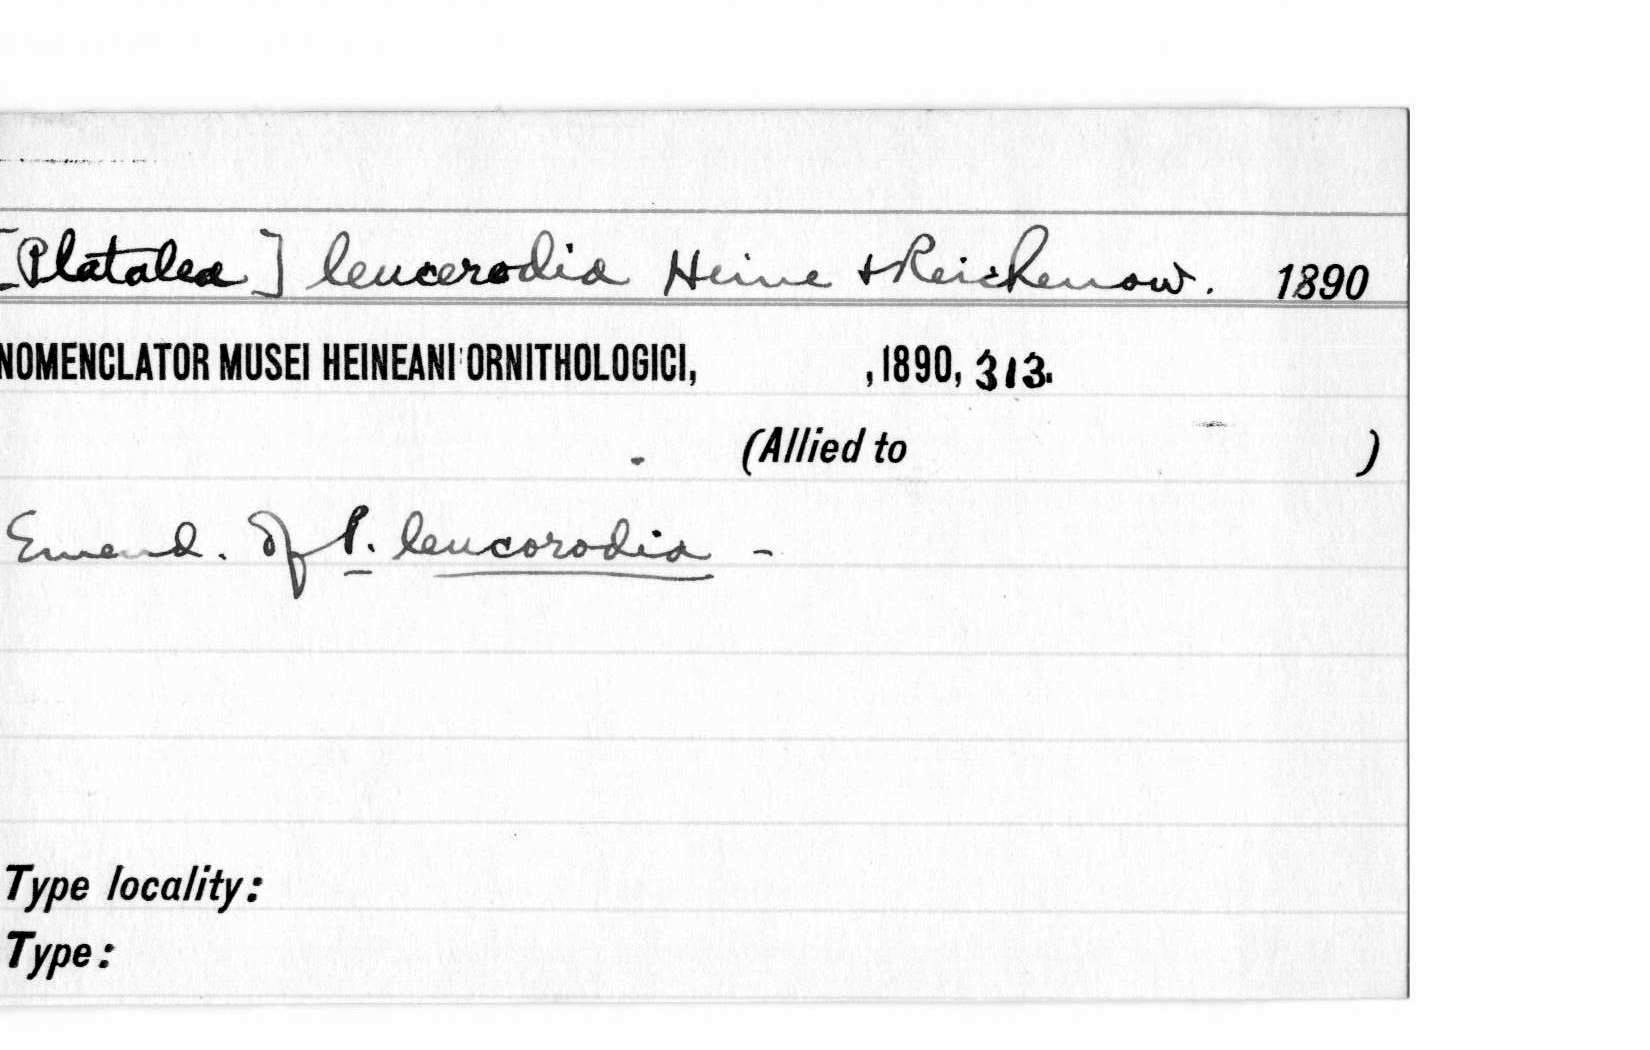 [Platalea] leucerodia Heine + Reichenow. 1890
NOMENCLATOR MUSEI HEINEANI ORNITHOLOGICI, , 1890, 313.
(Allied to )
Emend. of P. leucorodia -
Type locality:
Type: